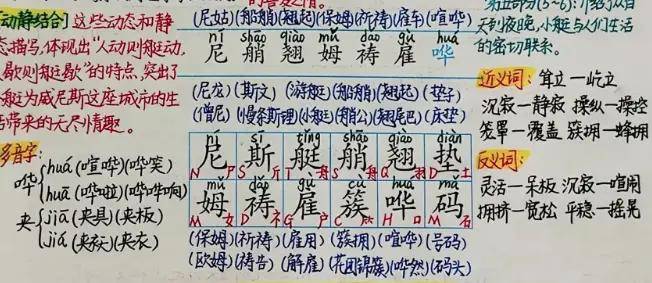 动静结合 这些动态和静
态描写,体现出“人动则艇动,
歇则艇歇”的特点,突出了
小艇为威尼斯这座城市的生
活带来的无尽情趣。
多音字:
哗 huá (喧哗)(哗笑)
huā (哗啦)(哗哗响)
夹 jiā (夹具)(夹板)
jiá (夹袄)(夹衣)
(尼姑)(船艄)(翘起)(保姆)(祈祷)(雇车)(喧哗)
ní shāo qiào mǔ dǎo gù huá
尼 艄 翘 姆 祷 雇 哗
(尼龙)(斯文)(游艇)(船艄)(翘起)(垫子)
(僧尼)(慢条斯理)(小艇)(艄公)(翘尾巴)(床垫)
ní sī tǐng shāo qiào diàn
尼 斯 艇 艄 翘 垫
N 尸 S 斤 T 舟 S 舟 Q 羽 D 土
mǔ dǎo gù cù huá mǎ
姆 祷 雇 簇 哗 码
M 女 D 礻 G 户 C 竹 H 口 M 石
(保姆)(祈祷)(雇用)(簇拥)(喧哗)(号码)
(欧姆)(祷告)(解雇)(花团锦簇)(哗然)(码头)
天到夜晚,小艇与人们生活
的密切联系。
近义词: 耸立—屹立
沉寂—静寂 操纵—操控
笼罩—覆盖 簇拥—蜂拥
反义词:
灵活—呆板 沉寂—喧闹
拥挤—宽松 平稳—摇晃